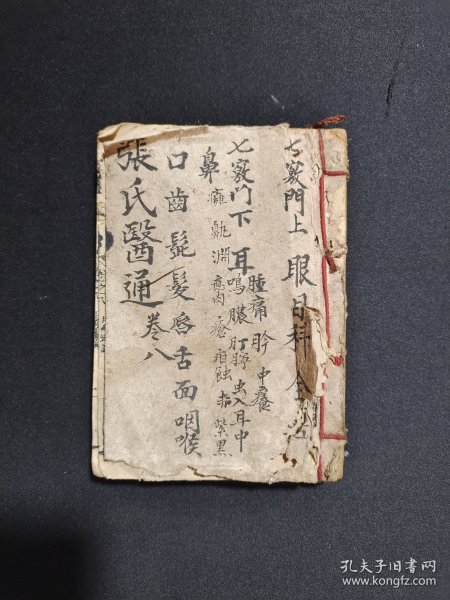 七竅門上 眼目科全
七竅门下 耳 腫痛 聤 中癢
鳴膿 耵聹 虫入耳中
鼻 癰 鼽 淵 瘜肉 瘡 疳蝕 赤 紫黑
口齒髭髮唇舌面咽喉
張氏醫通 卷八
孔夫子旧书网
www.kongfz.com